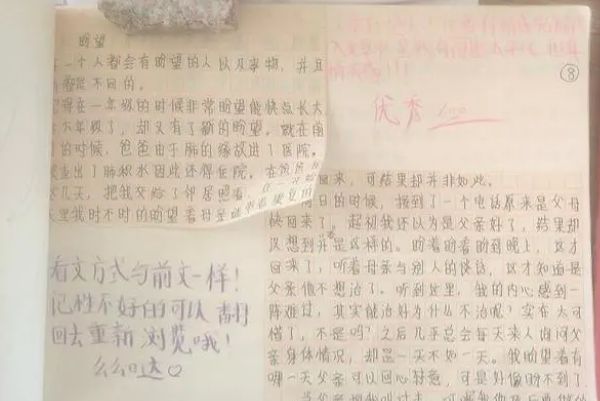 盼望
一个人都会有盼望的人以及事物，并且
都是不同的。
在一年级的时候非常盼望能快点长大，
六年级了，却又有了新的盼望。就在
的时候，爸爸由于肺的缘故进了医院。
查出了肺积水因此还住院。在爸爸
几天，把我交给了邻居照看。
里我时不时的盼望着母亲
看文方式与前文一样！
记性不好的可以翻
回去重新浏览哦！
么么哒
⑧
优秀
回来，可结果却并非如此。
日的时候，接到了一个电话原来是父母
快回来了。起初我还以为是父亲好了，结果却
没想到并不是这样的。盼着盼着盼到晚上，这才
回来了，听着母亲与别人的谈话，这才知道是
父亲他不想治了。听到这里，我的内心感到一
阵难过，其实能治好为什么不治呢？实在太可
惜了，不是吗？之后几乎总会每天来人询问父
亲身体情况，却是一天不如一天。我盼望着有
哪一天父亲可以回心转意，可是好像盼不到了